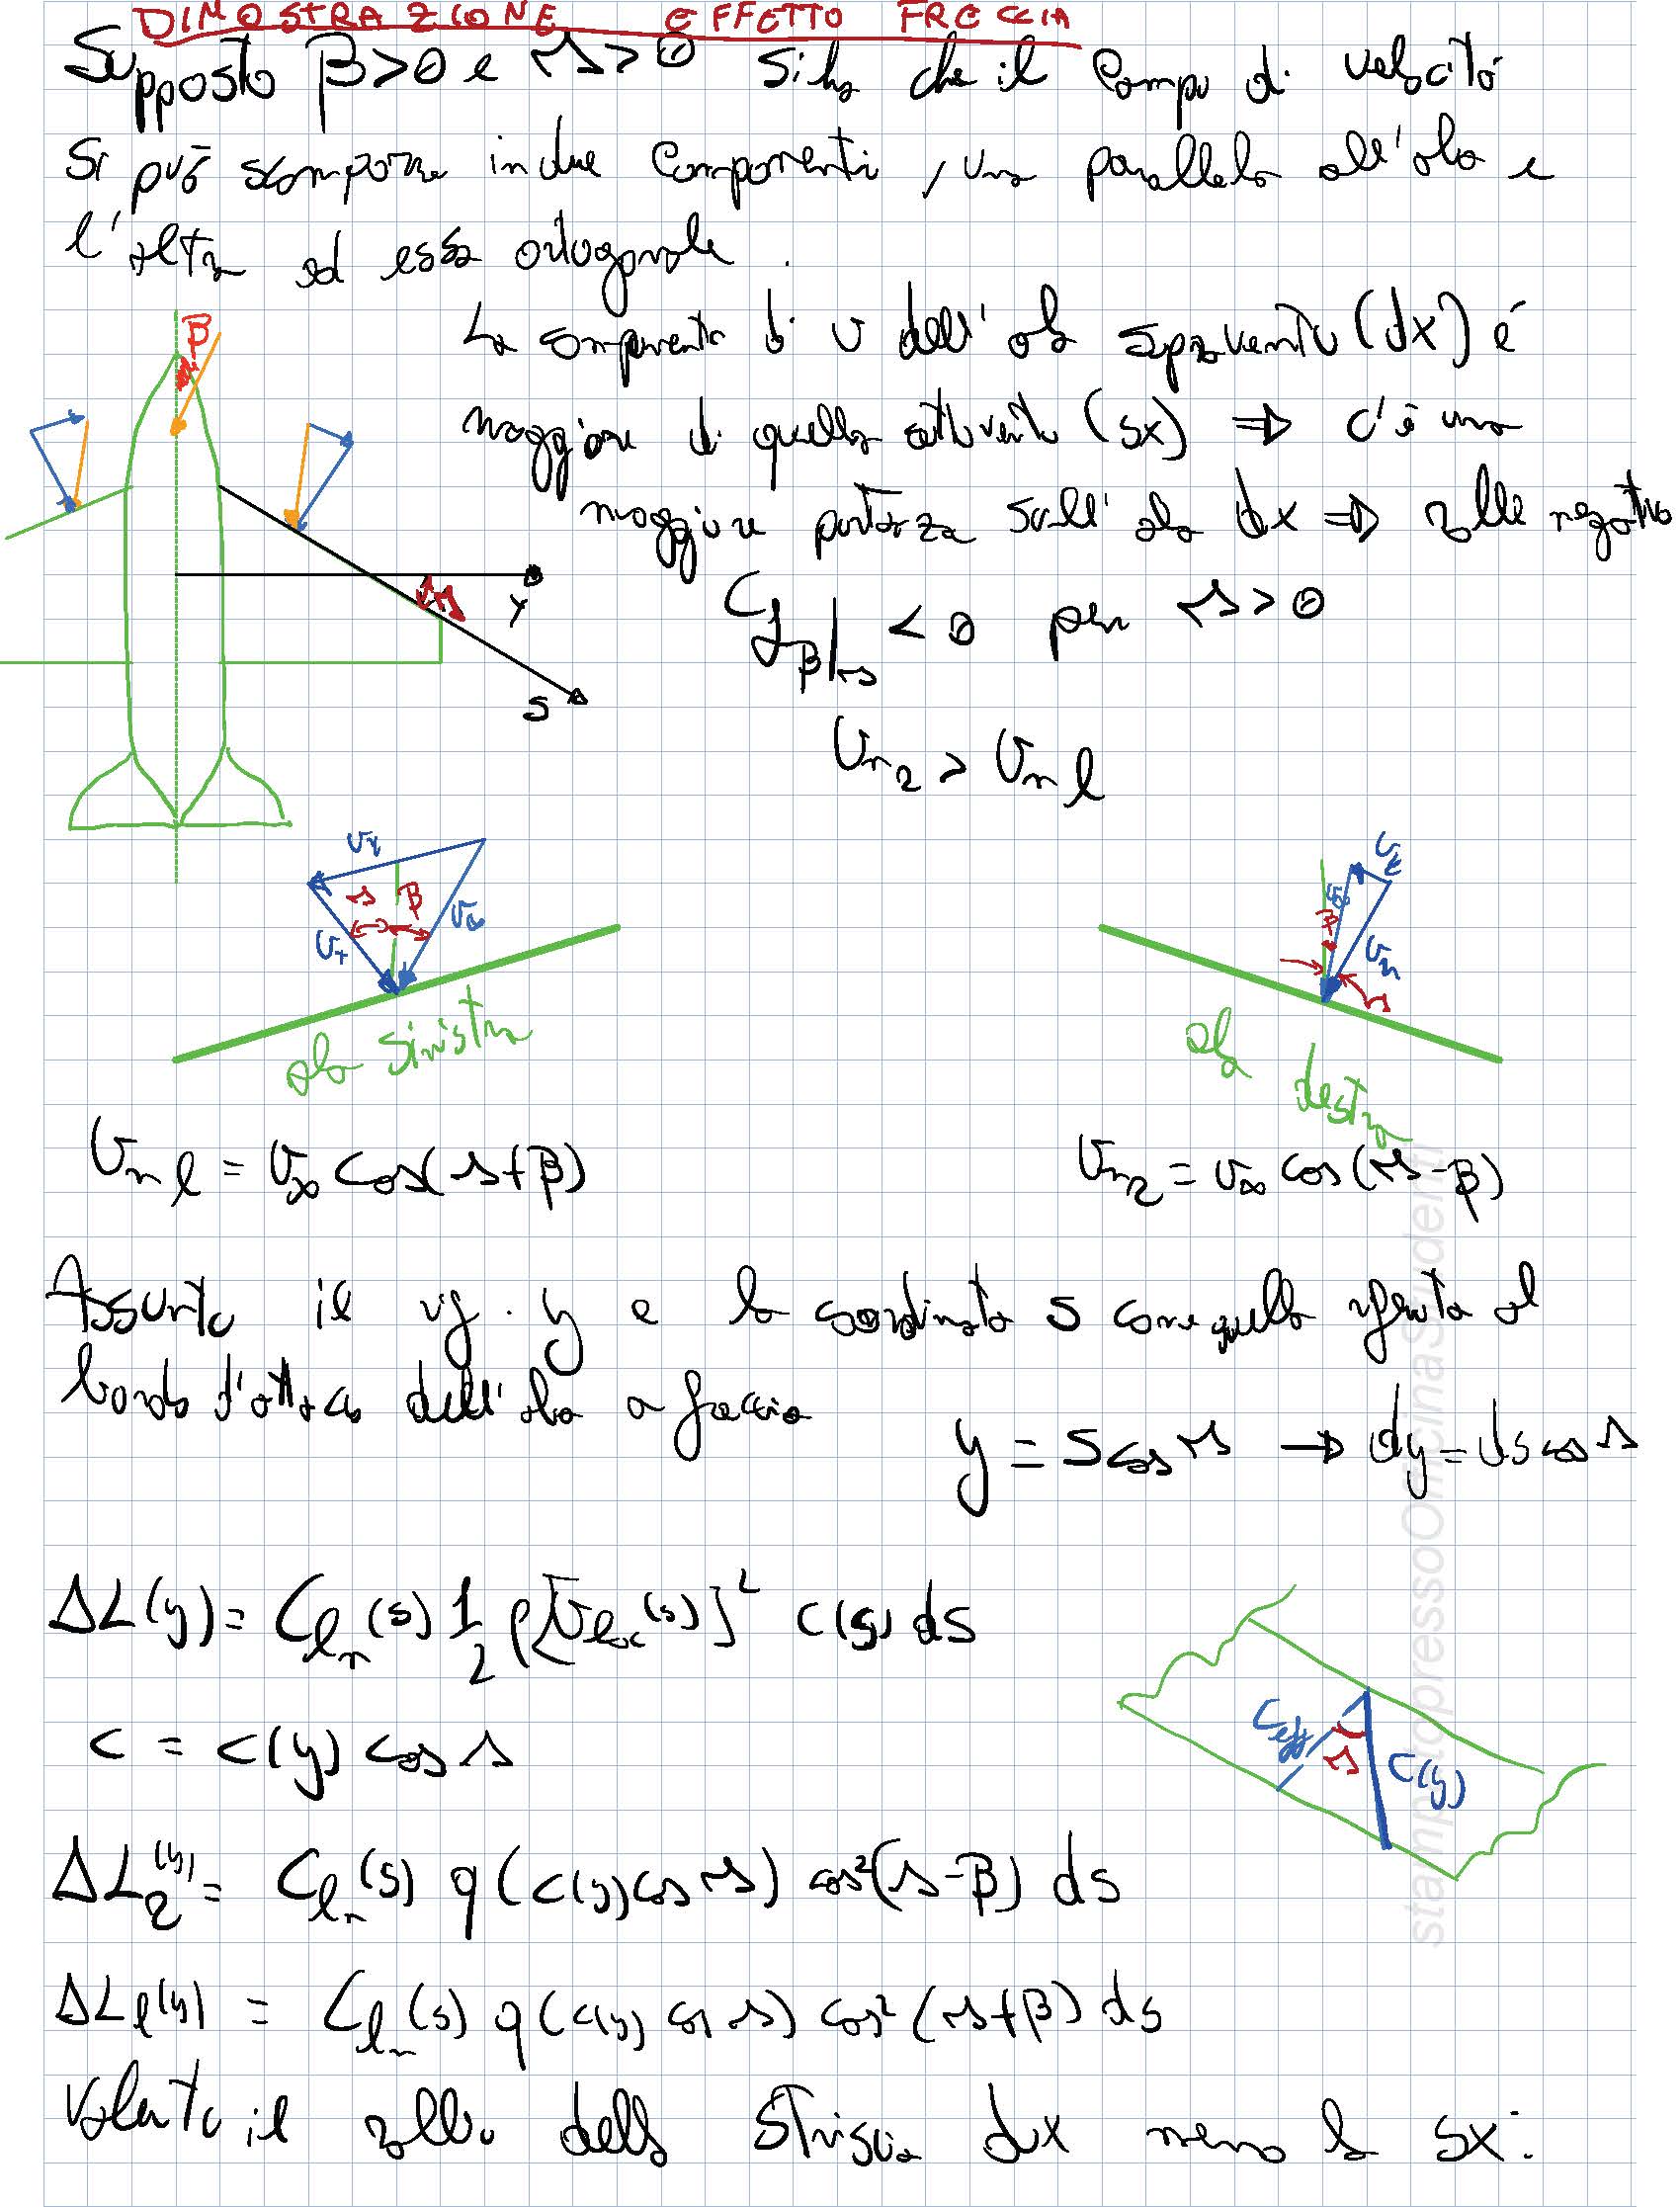 DIMOSTRAZIONE EFFETTO FRECCIA
Supposto β>0 e Λ>0 si ha che il campo di velocità
si può scomporre in due componenti, una parallela all'ala e
l'altra ad essa ortogonale.
La componente di v dell'ala sopravento (dx) é
maggiore di quella sottovento (sx) ⇒ c'è una
maggiore portanza sull'ala dx ⇒ rollio negativo
β
Λ
Y
S
C_{lβ}|_Λ < 0 per Λ>0
V_{nr} > V_{nl}
Λ β
ala sinistra
β
Λ
ala destra
V_{nl} = V_∞ cos(Λ+β)
V_{nr} = V_∞ cos(Λ-β)
Assunto il rif. y e la coordinata s come quella riferita al
bordo d'attacco dell'ala a freccia
y = s cosΛ → dy = ds cosΛ
ΔL(y) = C_{ln}(s) 1/2 ρ[V_{loc}(s)]² c(s) ds
c = c(y) cosΛ
C_{eff} Λ C(y)
ΔL_r(y) = C_{ln}(s) q (c(y) cosΛ) cos²(Λ-β) ds
ΔL_l(y) = C_{ln}(s) q (c(y) cosΛ) cos²(Λ+β) ds
Valuto il rollio della striscia dx meno la sx:
stamptopressoOfficinaStudenti